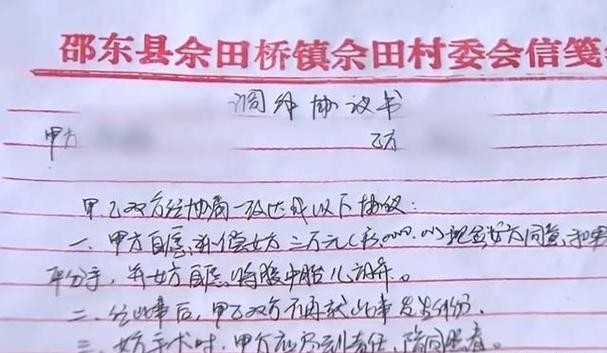 邵东县佘田桥镇佘田村委会信笺
调解协议书
甲方 乙方
甲、乙双方经协商一致达成以下协议:
一、甲方自愿补偿女方三万元 现金,女方同意和
平分手,并女方自愿将腹中胎儿 。
二、经此事后,甲乙双方不再就此事发生纠纷。
三、女方手术时,甲方应尽到责任,陪同 。